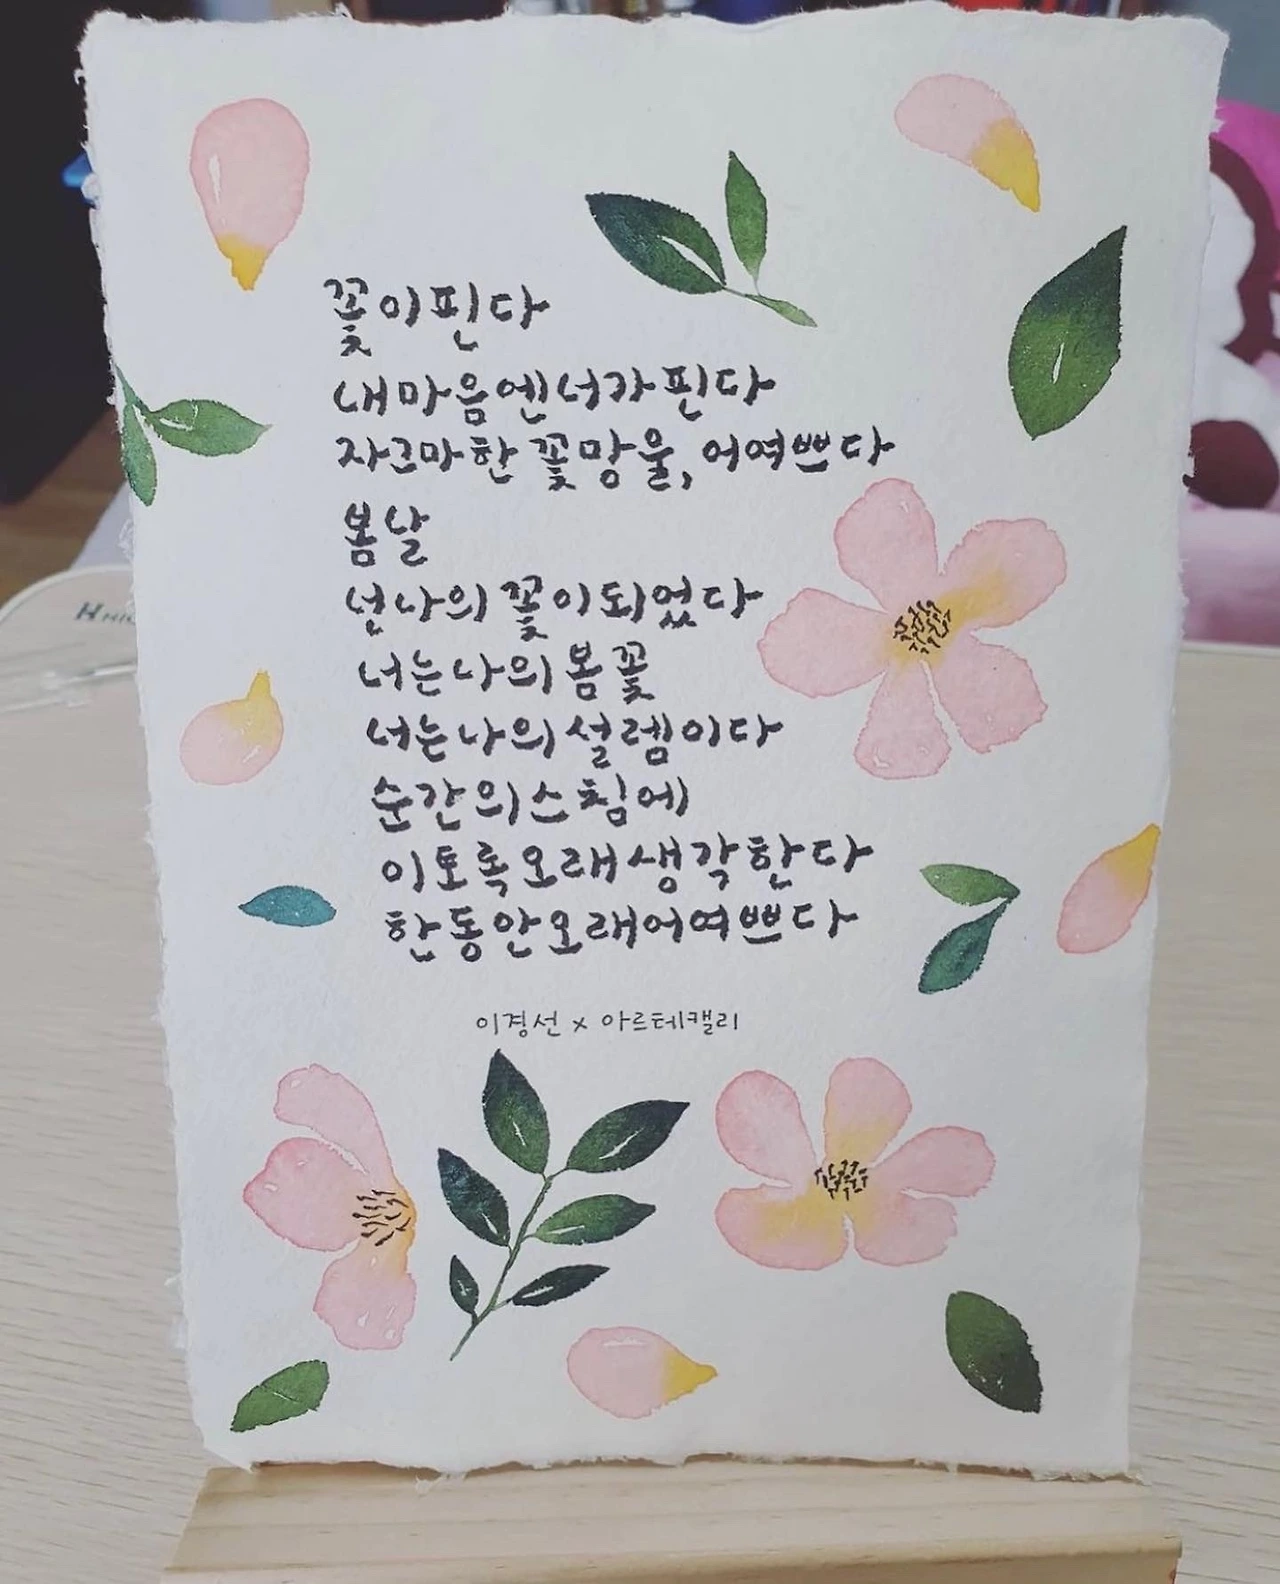 꽃이 핀다
내 마음엔 너가 핀다
자그마한 꽃망울, 어여쁘다
봄날
넌 나의 꽃이 되었다
너는 나의 봄꽃
너는 나의 설렘이다
순간의 스침에
이토록 오래 생각한다
한동안 오래 어여쁘다
이경선 x 아르테캘리